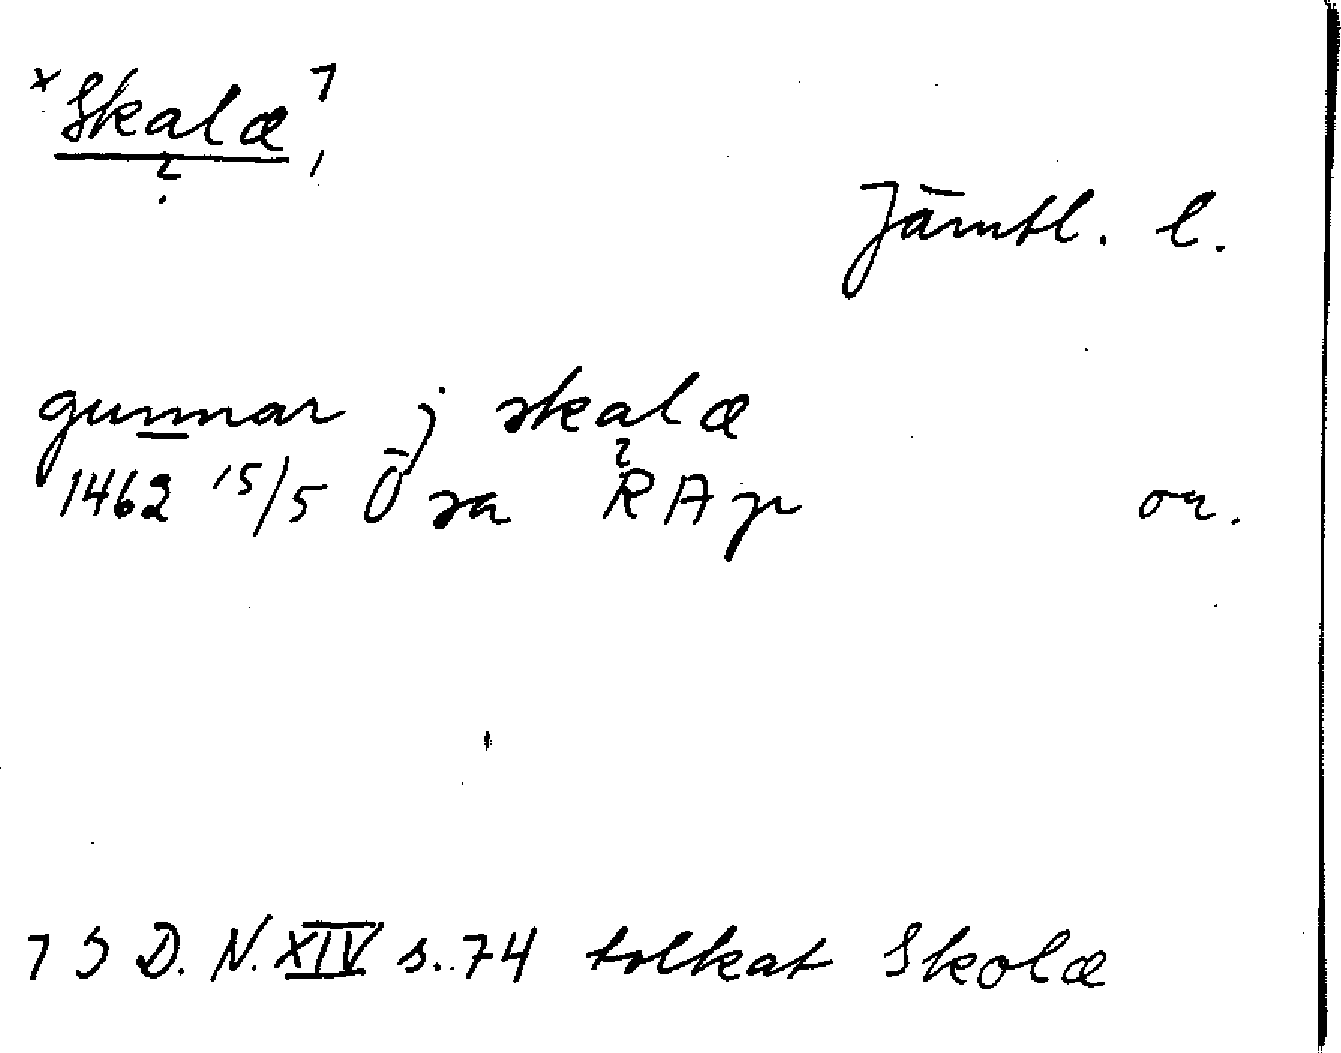 × Skalæ ⁊ ,
?
Jämtl. l.
gunnar j skalæ
?
1462 15/5 Ö sa RAp or.
⁊ I D. N. XIV s. 74 tolkat Skolæ